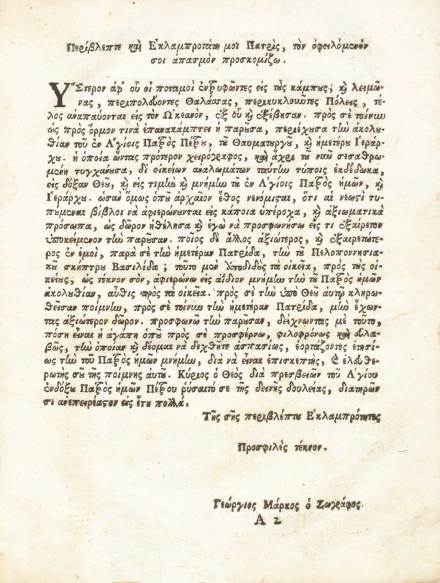 Περίβλεπτε καὶ Ἐκλαμπροτάτη μοι Πατρὶς, τὸν ὀφειλόμενόν
σοι ἀσπασμὸν προσκομίζω.
ὝΣτερον ἀφ' οὗ οἱ ποταμοὶ ἐνδρυφῶντες εἰς τὰς κάμπυς, καὶ λειμῶ-
νας, περιπολεύοντες Θαλάσσας, περικυκλοῦντες Πόλεις, τέ-
λος ἀναπαύονται εἰς τὸν Ὠκεανὸν, ἐξ οὗ καὶ ἐξέβησαν. πρὸς σὲ τοίνυν
ὡς πρὸς ὅρμον τινὰ ἐπανακάμπτει ἡ παρούσα, περιέχουσα τὴν ἀκολυ-
θίαν τοῦ ἐν Ἁγίοις Παρὸς Πέτρου, τοῦ Θαυματυργοῦ, καὶ ἡμετέρυ Ἱεράρ-
χυ. ἡ ὁποία ὤντας πρότερον χειρόγραφος, καὶ ἄχρι τοῦ νῦν σεσαθρω-
μένη τυγχάνυσα, δι' οἰκείων ἀναλωμάτων ταύτην τύποις ἐκδέδωκα,
εἰς δόξαν Θεοῦ, καὶ εἰς τιμὴν καὶ μνήμην τοῦ ἐν Ἁγίοις Παρὸς ἡμῶν, καὶ
Ἱεράρχυ. ὡσὰν ὅμως ὁποῦ ἀρχαῖον ἔθος νενόμισται, ὅτι αἱ νεωστὶ τυ-
πυμέναι βίβλοι νὰ ἀφιερώνωνται εἰς κάποια ὑπέροχα, καὶ ἀξιωματικὰ
πρόσωπα, ὡς δῶρον ἠθέλησα καὶ ἐγὼ νὰ προσφωνήσω εἴς τι ἐξαίρετον
ὑποκείμενον τὴν παροῦσαν. ποῖος δὲ ἄλλος ἀξιώτερος, καὶ ἐξαιρετώτε-
ρος ἐν ἐμοὶ, παρὰ σὲ τὴν ἡμετέραν Πατρίδα, τὴν τοῦ Πελοποννησια-
κοῦ σκήπτρυ Βασιλίδα; τοῦτό μου ὑποδίδυς τὰ οἰκεῖα, πρὸς τὺς οἰ-
κείυς, ὡς τέκνον σὸν, ἀφιερώνω εἰς ἀΐδιον μνήμην τὴν τοῦ Παρὸς ἡμῶν
ἀκολυθίαν, αὖθις πρὸς τὰ οἰκεῖα. πρὸς σὲ τὴν ὑπὸ Θεοῦ αὐτῷ κληρω-
θεῖσαν ποίμνην, πρὸς σὲ τοίνυν τὴν ἡμετέραν Πατρίδα, μὴ ἔχων-
τας ἀξιώτερον δῶρον. προσφωνῶ τὴν παροῦσαν, δείχνωντας μὲ τοῦτο,
πόση εἶναι ἡ ἀγάπη ὁποῦ πρὸς σὲ προσφέρω, φιλοφρόνως καὶ εὐλα-
βῶς, τὴν ὁποίαν καὶ δέομαι νὰ δεχθῇς ἀσπασίως, ἑορτάζοντες ἐτησί-
ως τὴν τοῦ Παρὸς ἡμῶν μνήμην, διὰ νὰ εἶναι ἐπισκεπτὴς, καὶ ἐλευθε-
ρωτής συ τῆς ποίμνης αὐτοῦ. Κύριος ὁ Θεὸς διὰ πρεσβειῶν τοῦ Ἁγίου
ἐνδόξυ Παρὸς ἡμῶν Πέτρου ῥύσαιτό σε τῆς δεινῆς δουλείας, διατηρῶν
σε ἀνεπηρέαστον εἰς ἔτη πολλά.
Τῆς σῆς περιβλέπτυ Ἐκλαμπρότητος
Προσφιλὲς τέκνον.
Γεώργιος Μάρκος ὁ Ζωγράφος.
A 2